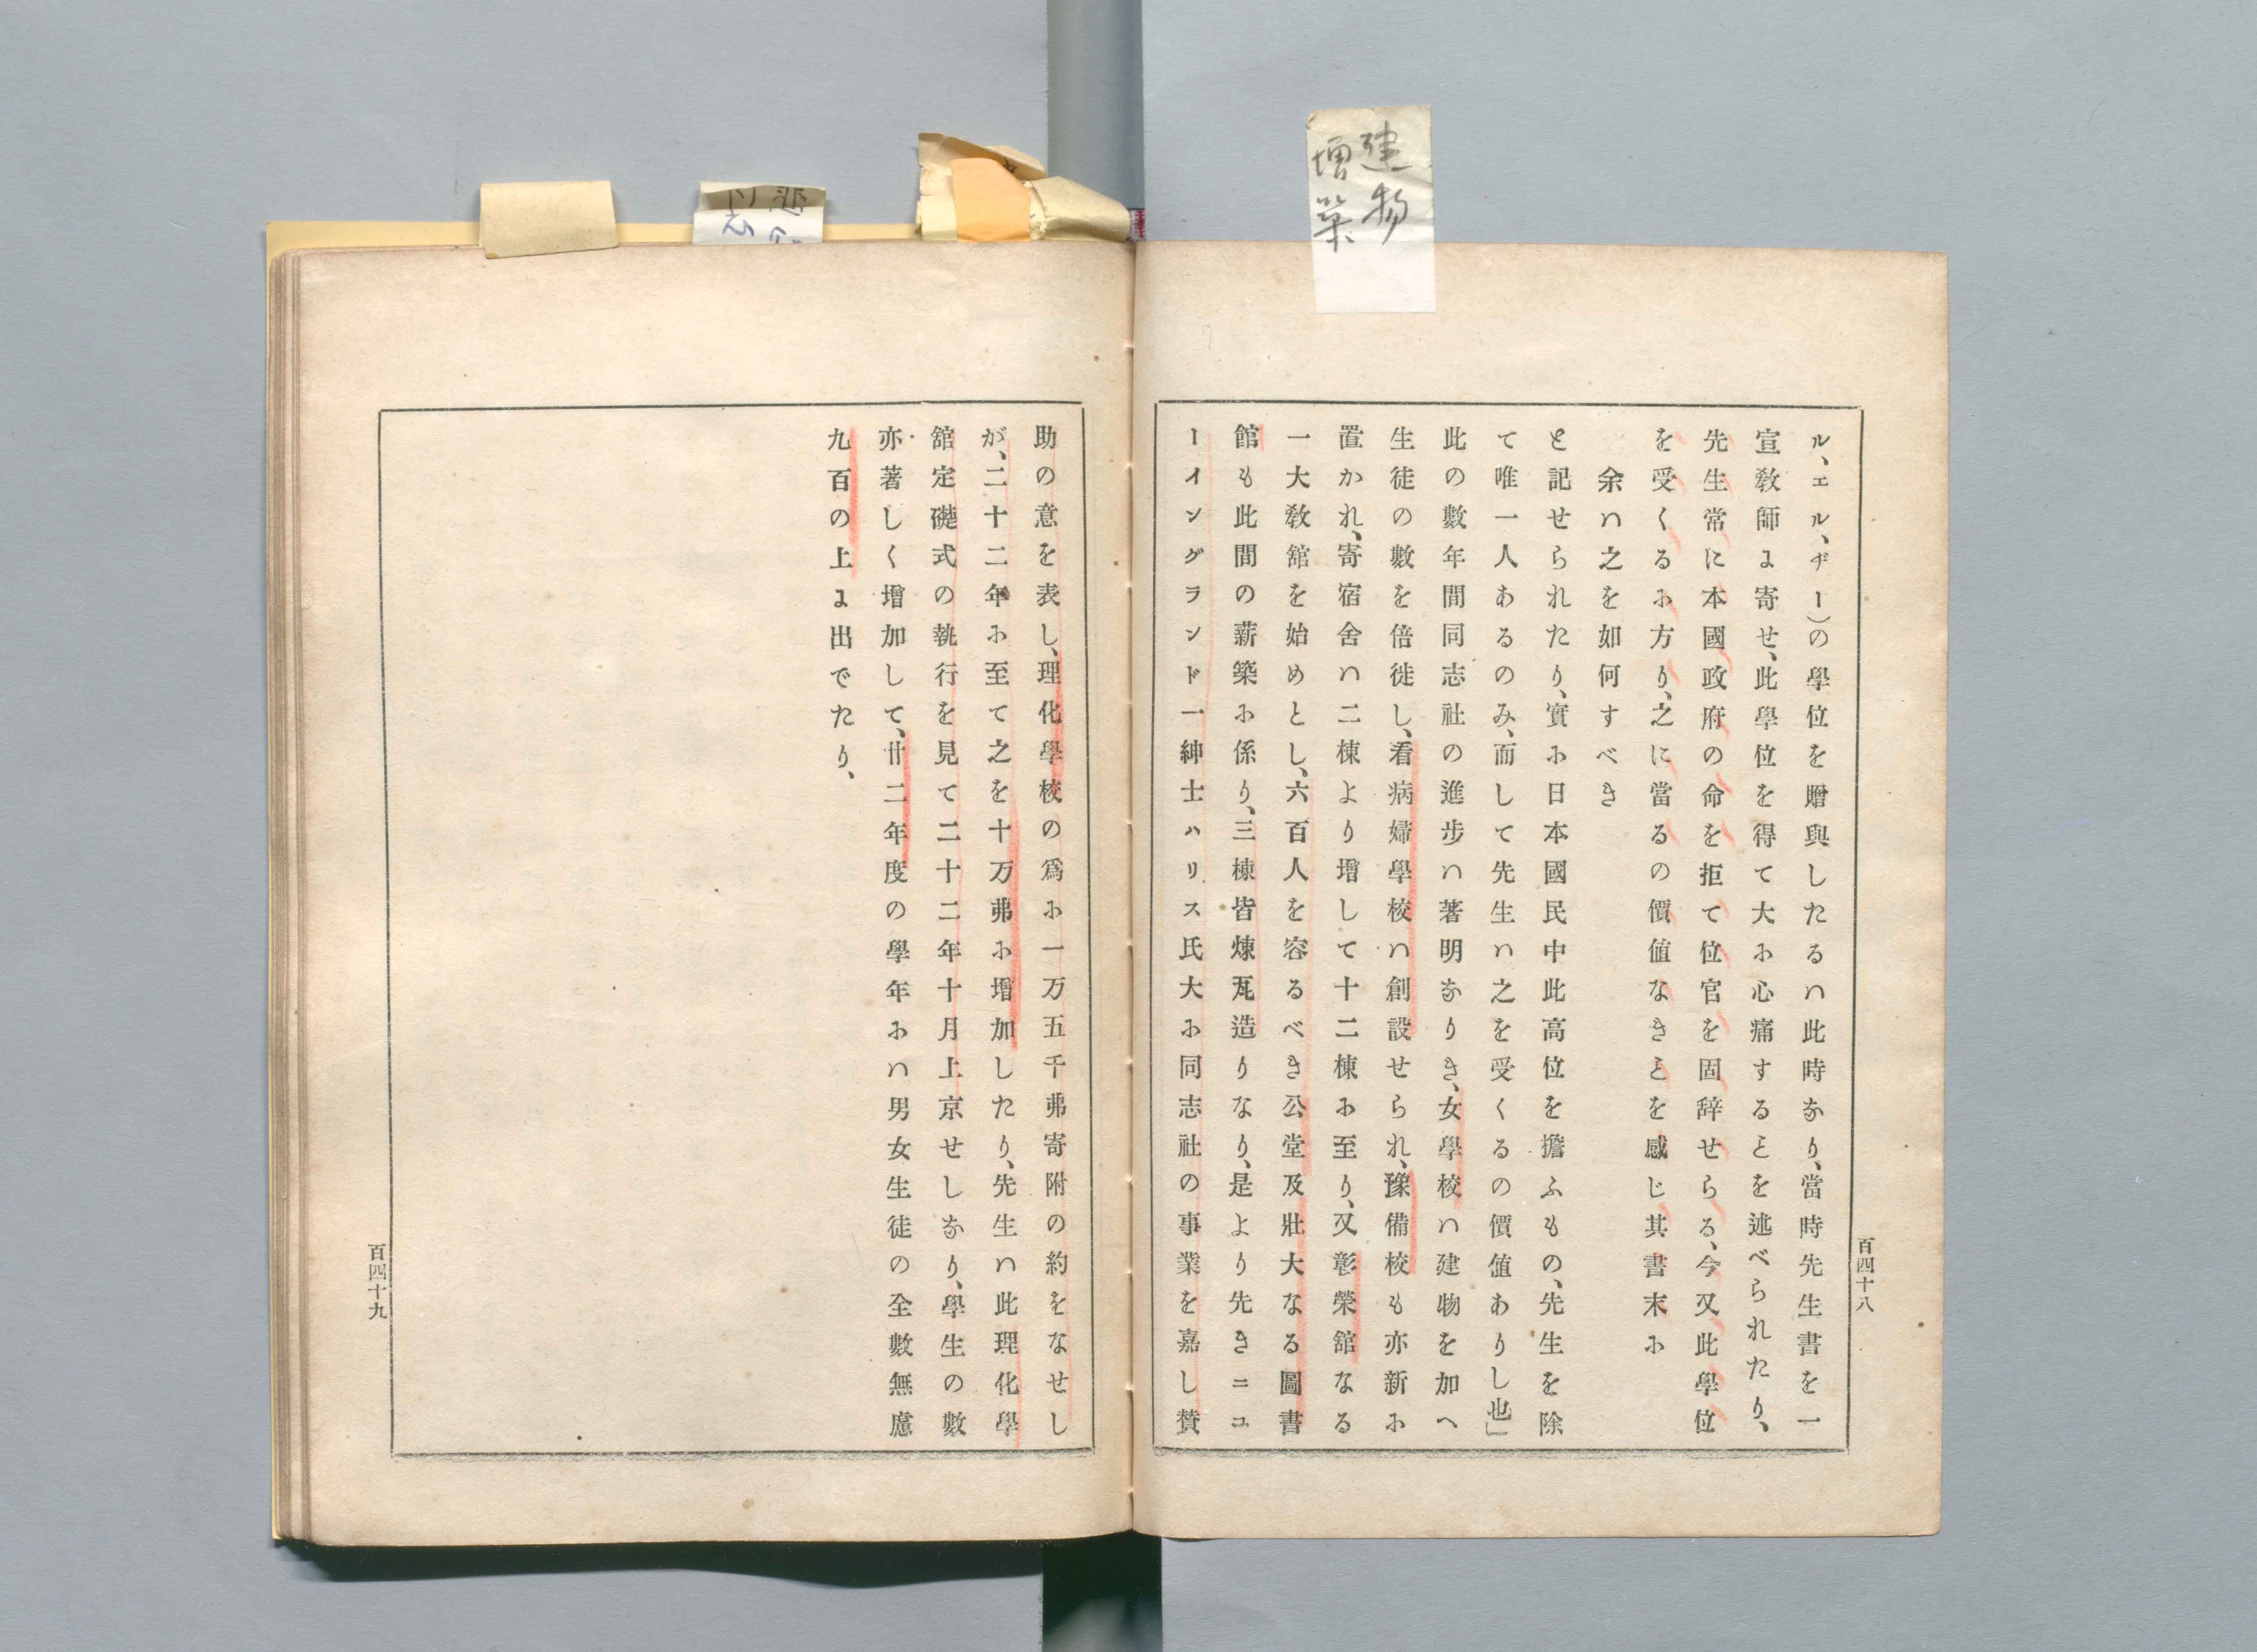 建物
増築
ル、エル、ヂー)の學位を贈與したるハ此時なり、當時先生書を一
宣敎師に寄せ、此學位を得て大に心痛することを述べられたり、
先生常に本國政府の命を拒て位官を固辞せらる、今又此學位
を受くるに方り、之に當るの價値なきことを感じ其書末に
余ハ之を如何すべき
と記せられたり、實に日本國民中此高位を擔ふもの、先生を除
て唯一人あるのみ、而して先生ハ之を受くるの價値ありし也」
此の數年間同志社の進步ハ著明なりき、女學校ハ建物を加へ
生徒の數を倍徙し、看病婦學校ハ創設せられ、豫備校も亦新に
置かれ、寄宿舍ハ二棟より增して十二棟に至り、又彰榮舘なる
一大敎舘を始めとし、六百人を容るべき公堂及壯大なる圖書
館も此間の薪築に係り、三棟皆煉瓦造りなり、是より先きニユ
ーイングランド一紳士ハリス氏大に同志社の事業を嘉し賛
百四十八
助の意を表し、理化學校の爲に一万五千弗寄附の約をなせし
が、二十二年に至て之を十万弗に增加したり、先生ハ此理化學
舘定礎式の執行を見て二十二年十月上京せしなり、學生の數
亦著しく增加して、廿二年度の學年にハ男女生徒の全數無慮
九百の上に出でたり、
百四十九